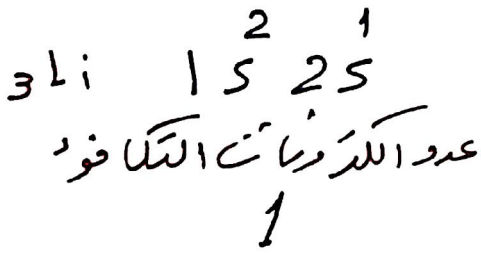 ₃Li 1s² 2s¹
عدد الكترونات التكافؤ
1